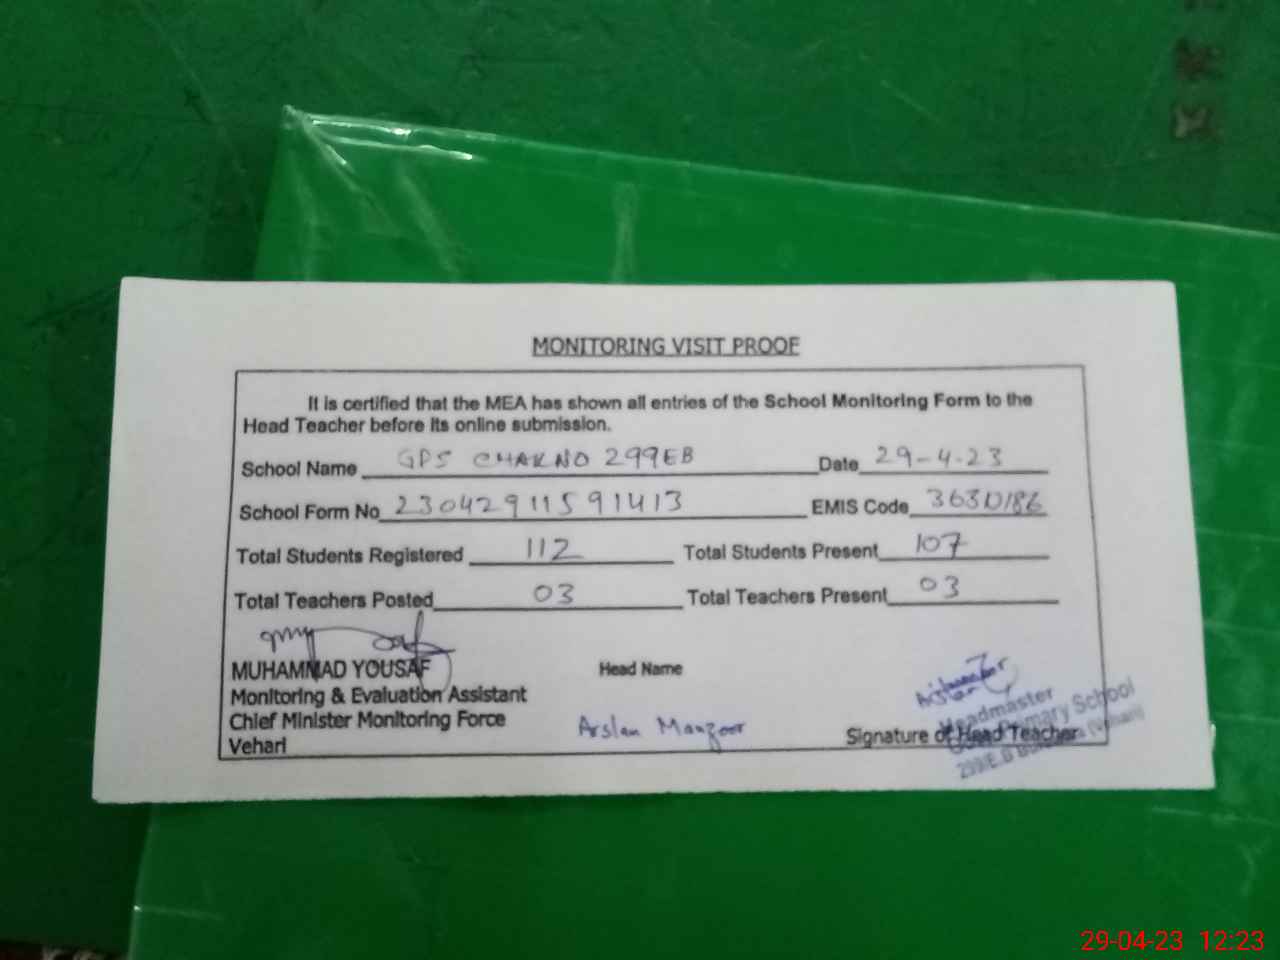 MONITORING VISIT PROOF
It is certified that the MEA has shown all entries of the School Monitoring Form to the
Head Teacher before its online submission.
School Name GPS CHAK NO 299EB Date 29-4-23
School Form No 23042911591413 EMIS Code 36310186
Total Students Registered 112 Total Students Present 107
Total Teachers Posted 03 Total Teachers Present 03
MUHAMMAD YOUSAF Head Name
Monitoring & Evaluation Assistant
Chief Minister Monitoring Force
Vehari Arslan Manzoor Signature of Head Teacher
Headmaster
Primary School
299/E.B (Vehari)
29-04-23 12:23